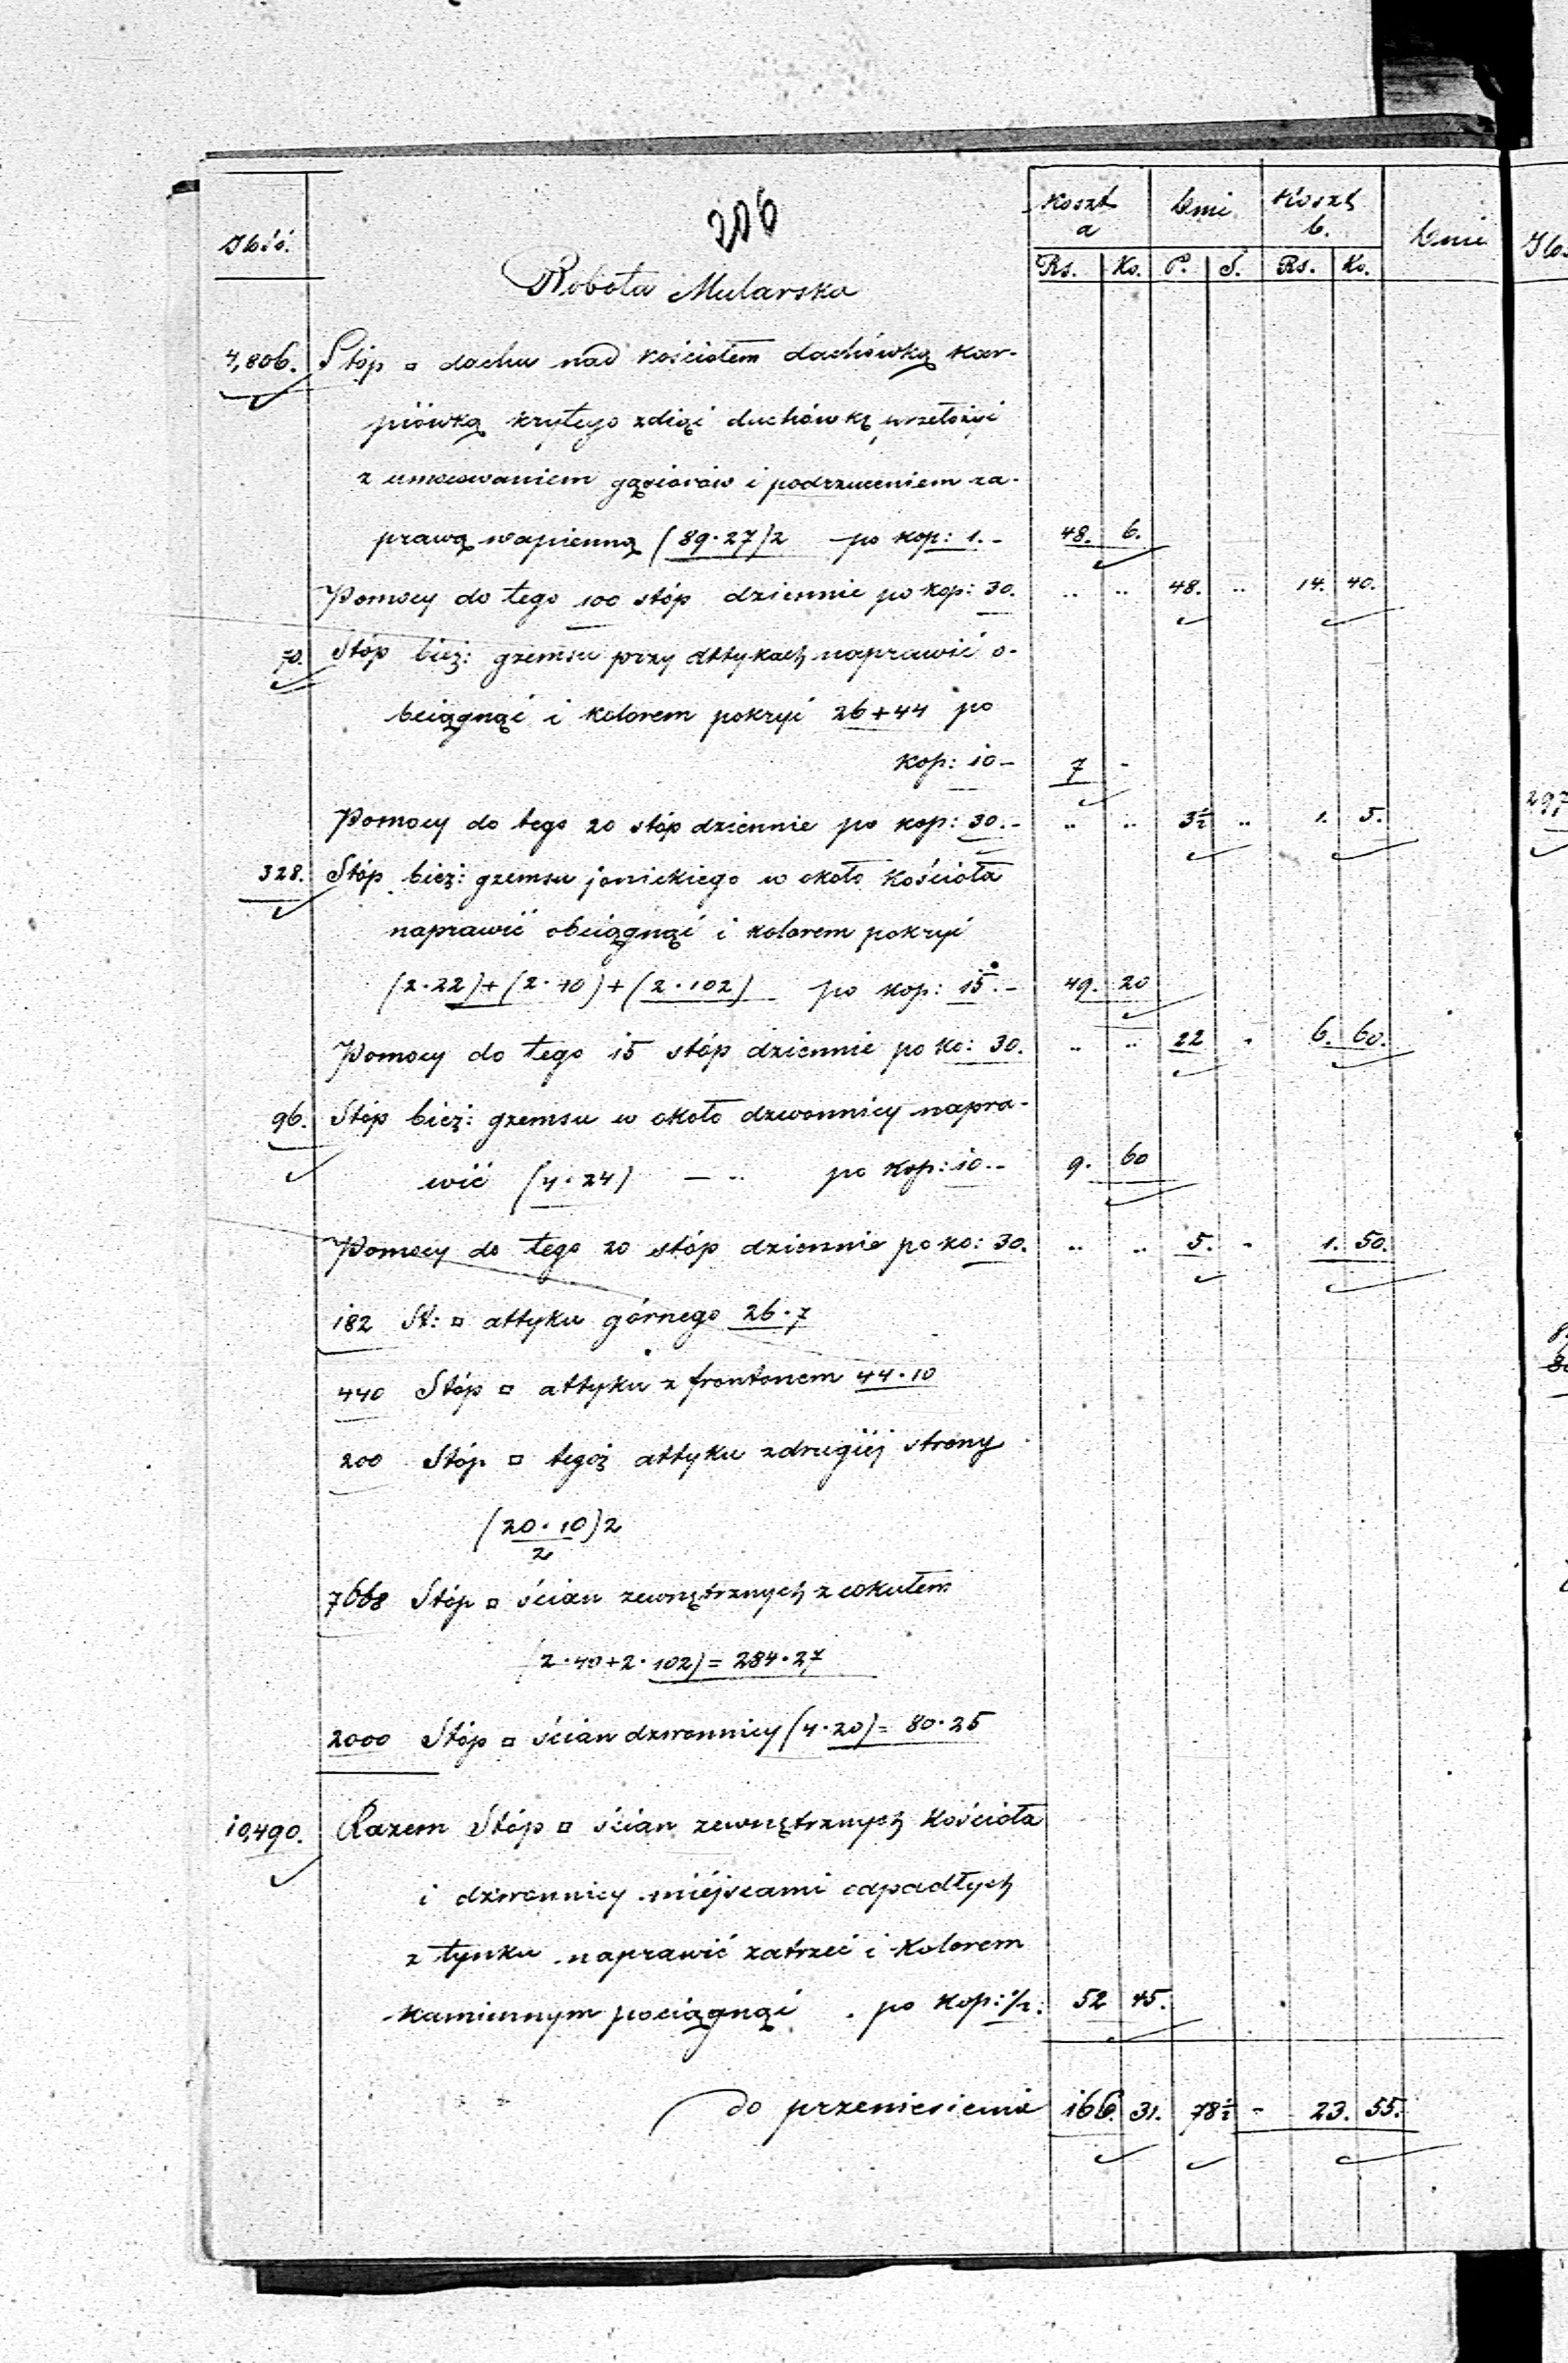 206
Ilość. Koszt a Dni Koszt b. Dni
Rs. Ko. P. S. Rs. Ko.
Robota Mularska
4,806. Stóp □ dachu nad kościołem dachówką kar-
piówką krytego zdiąć dachówkę przełożyć
z umocowaniem gąsiorów i podrzuceniem za-
prawą wapienną (89·27)2 po kop: 1.- 48. 6.
Pomocy do tego 100 stóp dziennie po kop: 30. .. .. 48. .. 14. 40.
70. Stóp bież: gzemsu przy attykach naprawić o-
bciągnąć i kolorem pokryć 26+44 po
kop: 10- 7 -
Pomocy do tego 20 stóp dziennie po kop: 30.- .. .. 3½ .. 1. 5.
328. Stóp bież: gzemsu jonickiego w około Kościoła
naprawić obciągnąć i kolorem pokryć
(2·22)+(2·40)+(2·102) po kop: 15.- 49. 20
Pomocy do tego 15 stóp dziennie po ko: 30. .. .. 22 - 6. 60.
96. Stóp bież: gzemsu w około dzwonnicy napra-
wić (4·24) — .. po kop: 10.- 9. 60
Pomocy do tego 20 stóp dziennie po ko: 30. .. .. 5. - 1. 50.
182 St: □ attyku górnego 26·7
440 Stóp □ attyku z frontonem 44·10
200 Stóp □ tegoż attyku zdrugiéj strony
(20·10)2
2
7668 Stóp □ ścian zewnętrznych z cokułem
(2·40+2·102)=284·27
2000 Stóp □ ścian dzwonnicy (4·20)= 80·25
10,490. Razem Stóp □ ścian zewnętrznych Kościoła
i dzwonnicy miéjscami odpadłych
z tynku naprawić zatrzeć i Kolorem
kamiennym pociągnąć po kop: ½: 52 45.
do przeniesienia 166. 31. 78½ - 23. 55.
297